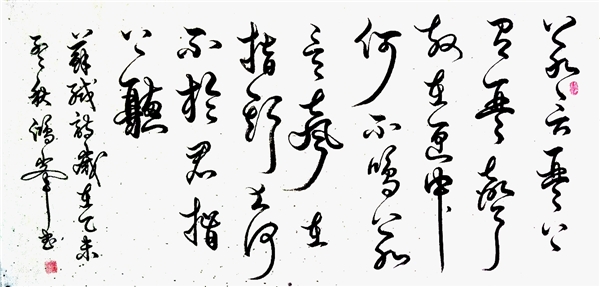 若言琴上
有琴聲
放在匣中
何不鳴若
言聲在
指頭上何
不於君指
上聽
蘇軾詩歲在乙未
秋鴻峯書